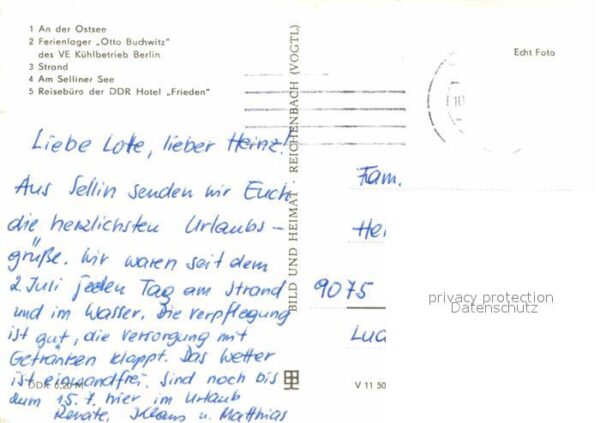 1 An der Ostsee
2 Ferienlager „Otto Buchwitz“
des VE Kühlbetrieb Berlin
3 Strand
4 Am Selliner See
5 Reisebüro der DDR Hotel „Frieden“
Echt Foto
Liebe Lotte, lieber Heinz!
Aus Sellin senden wir Euch
die herzlichsten Urlaubs-
grüße. Wir waren seit dem
2. Juli jeden Tag am Strand
und im Wasser. Die Verpflegung
ist gut, die Versorgung mit
Getränken klappt. Das Wetter
ist einwandfrei. Sind noch bis
zum 15.7. hier im Urlaub
Renate, Klaus u. Matthias
DDR 0,20 M
BILD UND HEIMAT · REICHENBACH (VOGTL)
Fam.
Hei
9075
privacy protection
Datenschutz
V 11 50